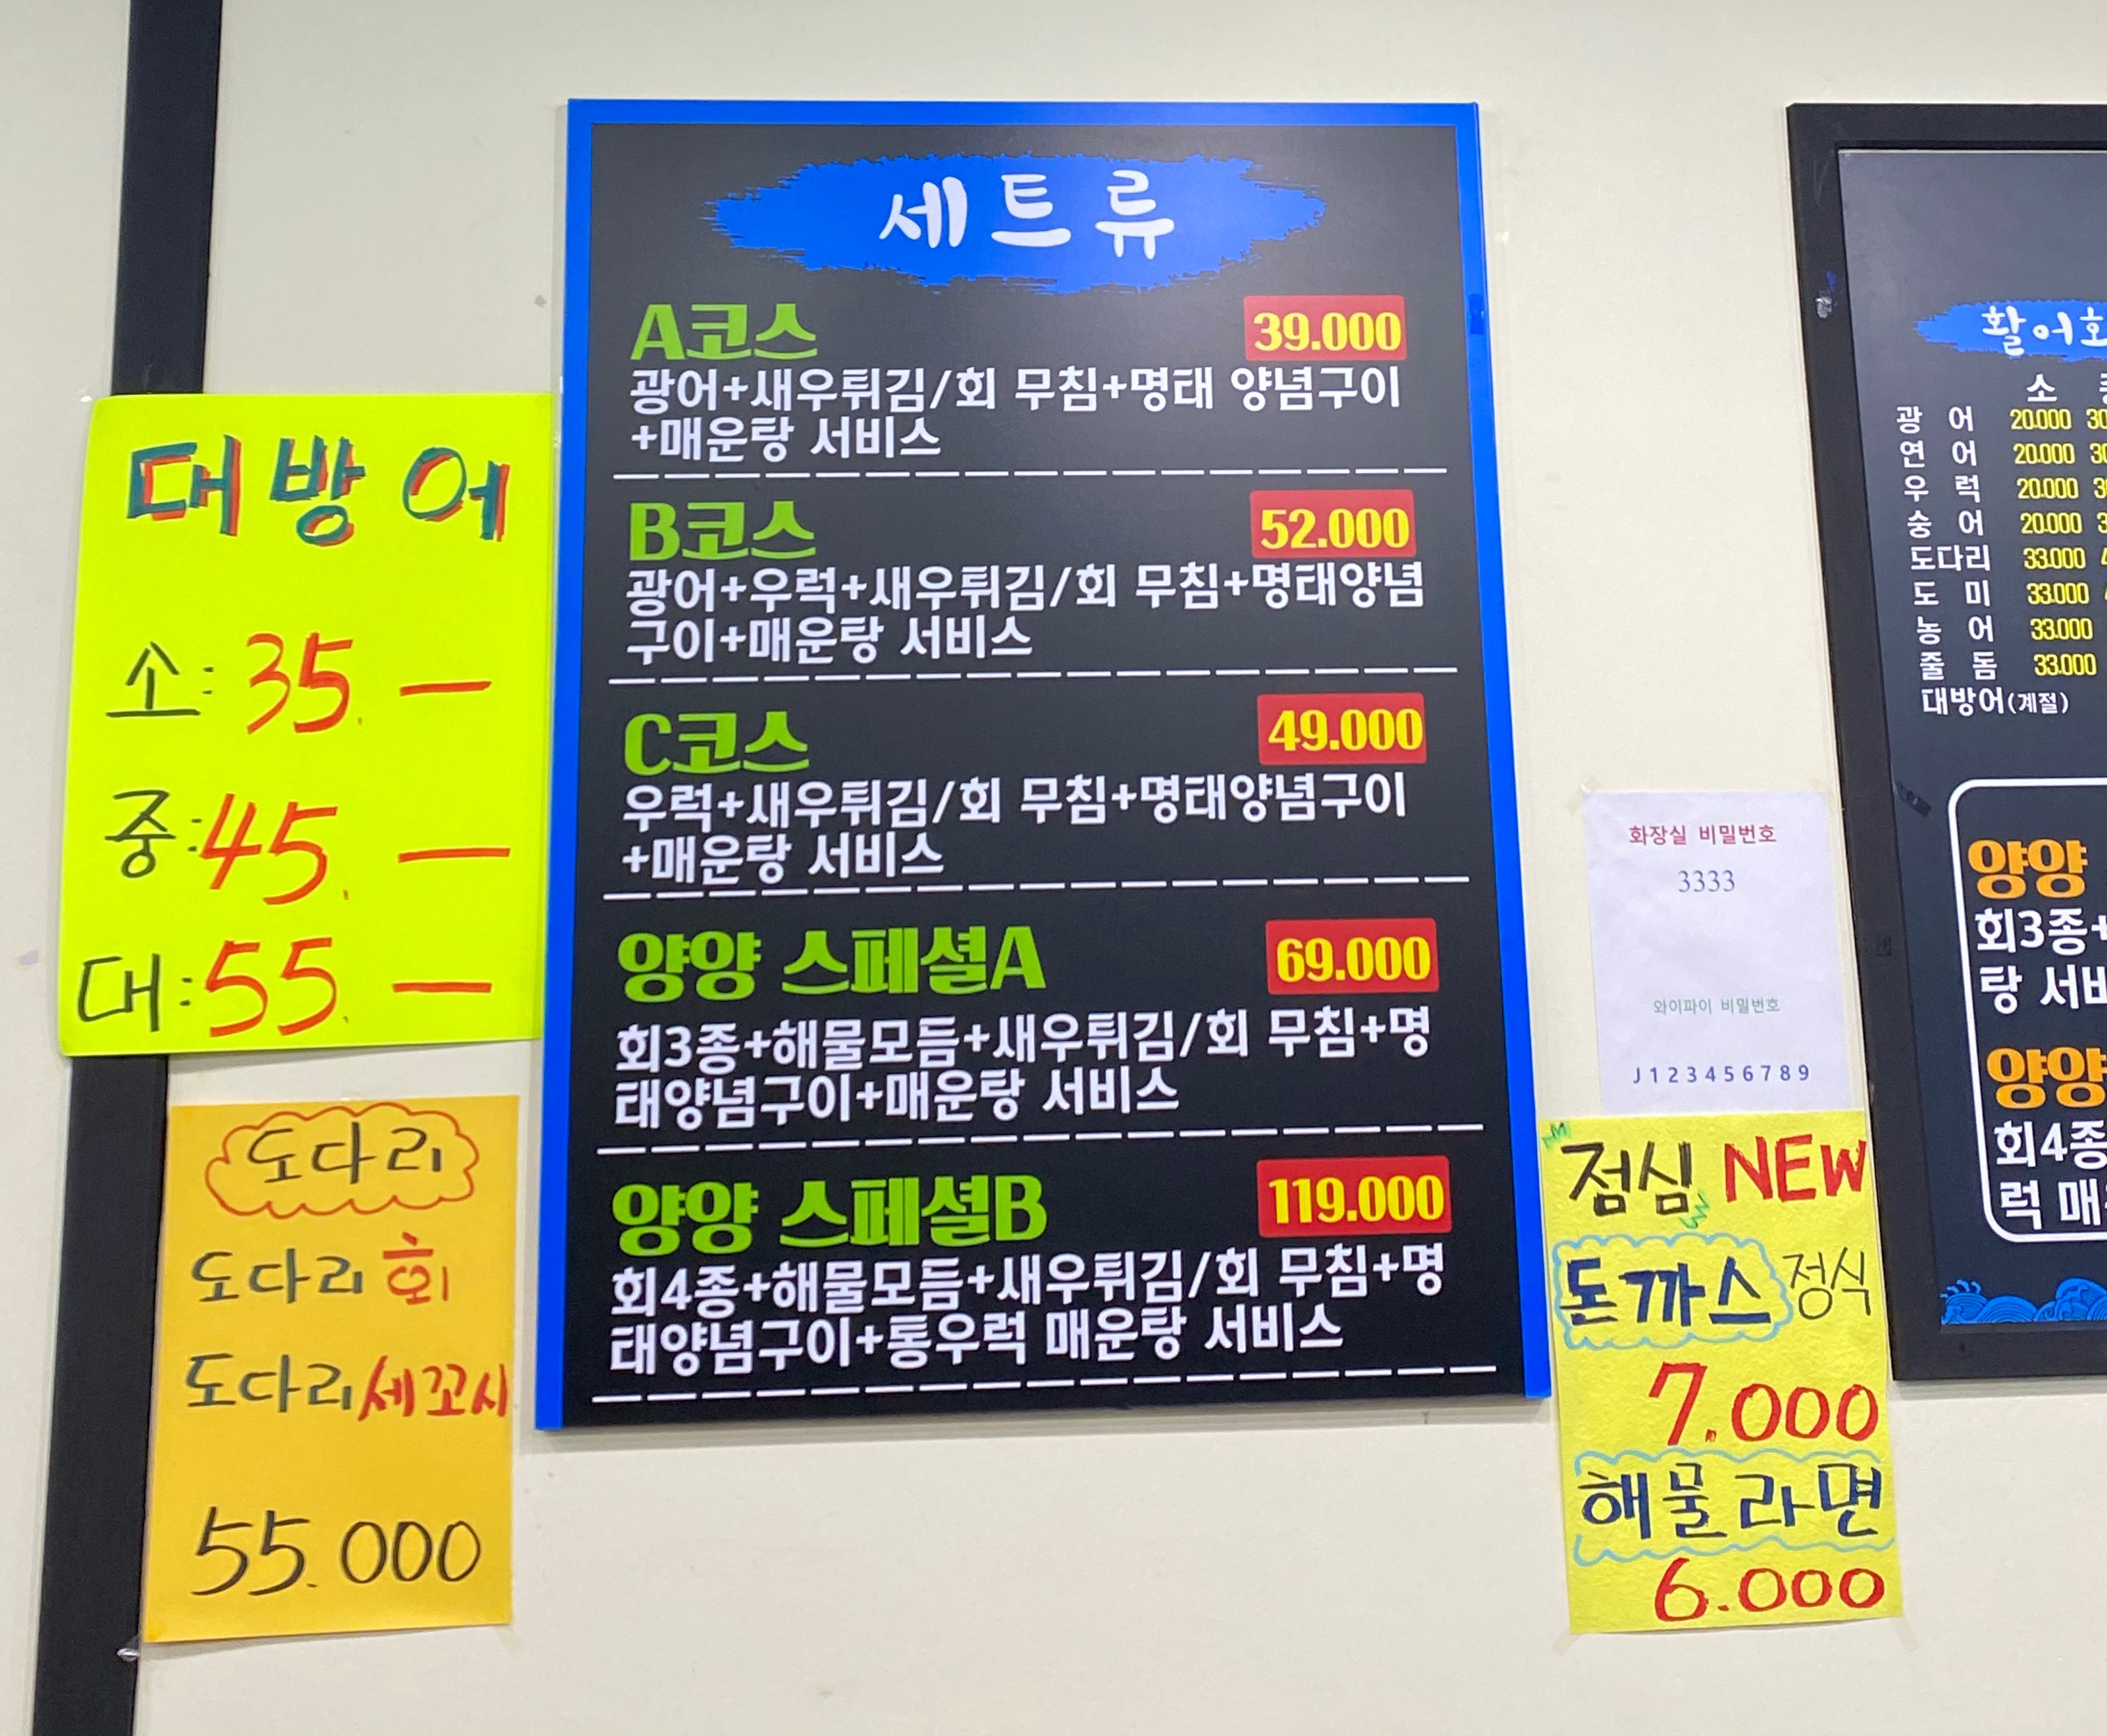 대방어
소: 35. —
중: 45. —
대: 55. —
도다리
도다리회
도다리세꼬시
55.000
세트류
A코스 39.000
광어+새우튀김/회 무침+명태 양념구이
+매운탕 서비스
B코스 52.000
광어+우럭+새우튀김/회 무침+명태양념
구이+매운탕 서비스
C코스 49.000
우럭+새우튀김/회 무침+명태양념구이
+매운탕 서비스
양양 스페셜A 69.000
회3종+해물모듬+새우튀김/회 무침+명
태양념구이+매운탕 서비스
양양 스페셜B 119.000
회4종+해물모듬+새우튀김/회 무침+명
태양념구이+통우럭 매운탕 서비스
화장실 비밀번호
3333
와이파이 비밀번호
J123456789
점심 NEW
돈까스 정식
7.000
해물라면
6.000
활어회
소
광 어 20.000
연 어 20.000
우 럭 20.000
숭 어 20.000
도다리 33.000
도 미 33.000
농 어 33.000
줄 돔 33.000
대방어(계절)
양양
회3종+
탕 서비
양양
회4종
럭 매